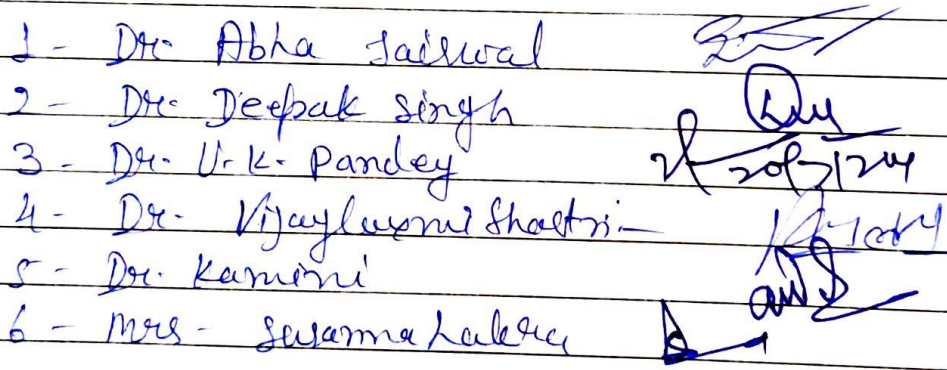 1 - Dr. Abha Jaiswal
2 - Dr. Deepak Singh
3 - Dr. U.K. Pandey
4 - Dr. Vijayluxmi Shastri
5 - Dr. Kamini
6 - Mrs - Susanna